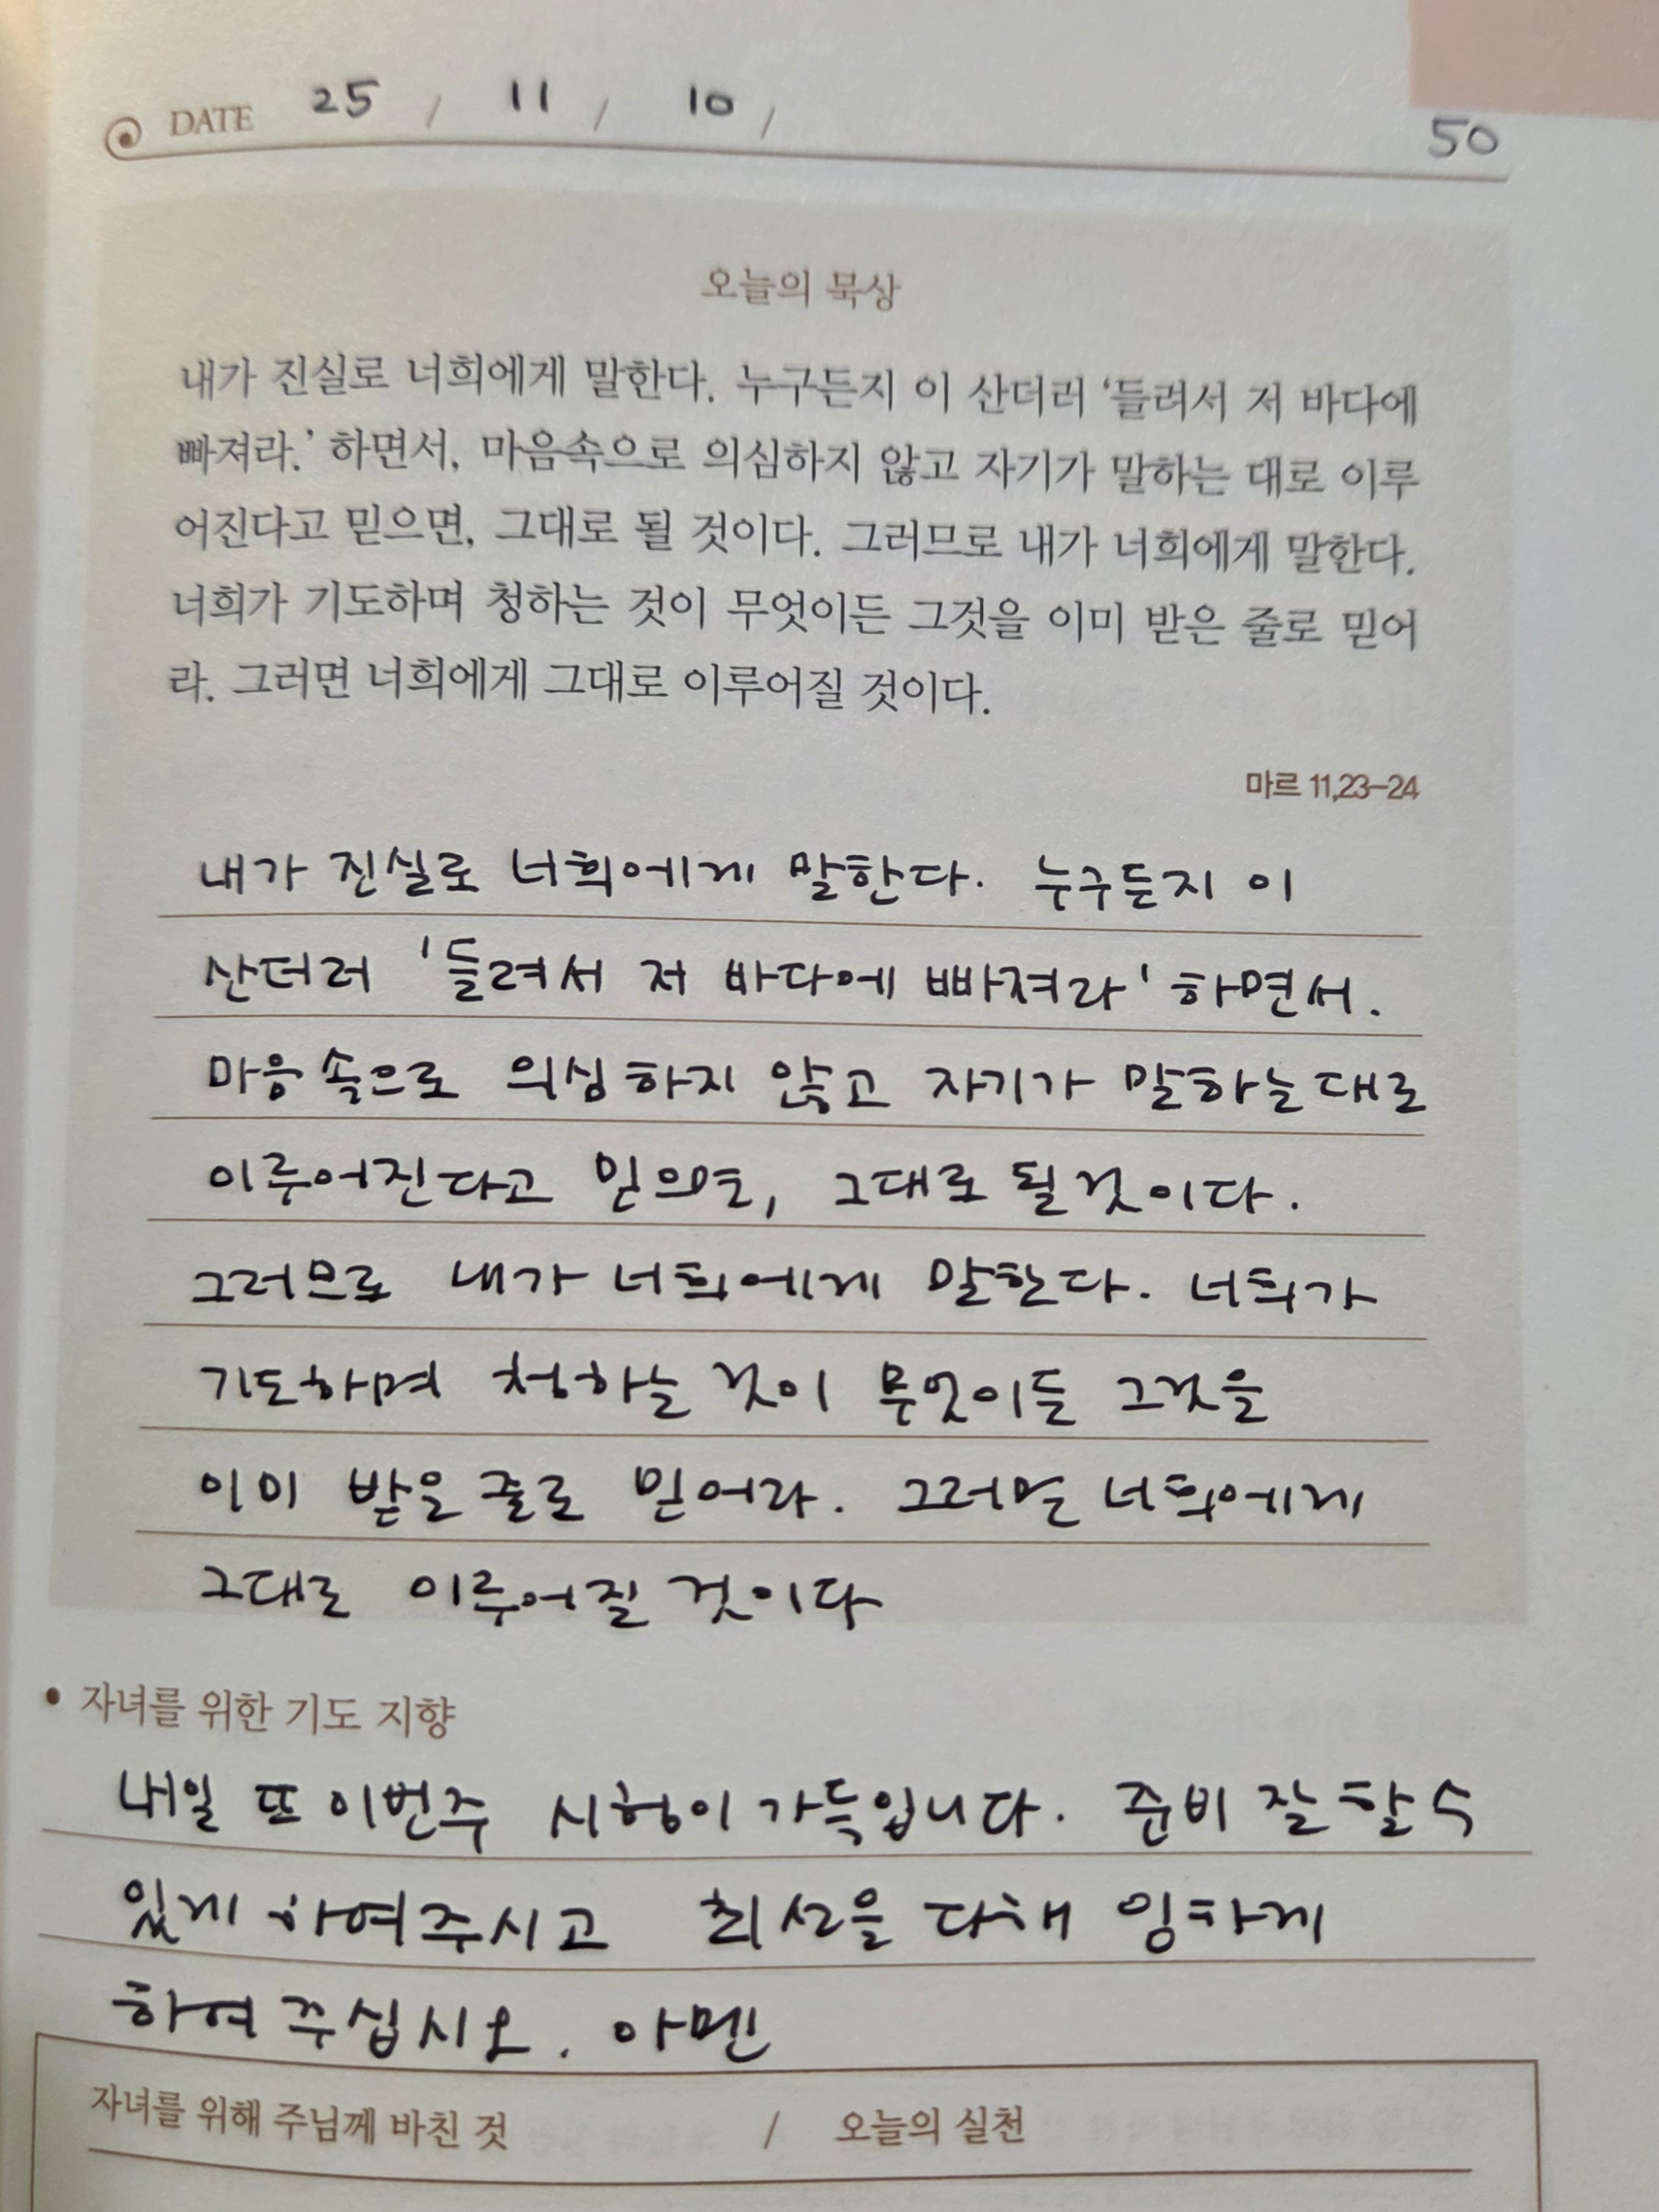 DATE 25 / 11 / 10 /
50
오늘의 묵상
내가 진실로 너희에게 말한다. 누구든지 이 산더러 ‘들려서 저 바다에
빠져라.’ 하면서, 마음속으로 의심하지 않고 자기가 말하는 대로 이루
어진다고 믿으면, 그대로 될 것이다. 그러므로 내가 너희에게 말한다.
너희가 기도하며 청하는 것이 무엇이든 그것을 이미 받은 줄로 믿어
라. 그러면 너희에게 그대로 이루어질 것이다.
마르 11,23–24
내가 진실로 너희에게 말한다. 누구든지 이
산더러 '들려서 저 바다에 빠져라' 하면서.
마음속으로 의심하지 않고 자기가 말하는대로
이루어진다고 믿으면, 그대로 될것이다.
그러므로 내가 너희에게 말한다. 너희가
기도하며 청하는 것이 무엇이든 그것을
이미 받을 줄로 믿어라. 그러면 너희에게
그대로 이루어질 것이다
• 자녀를 위한 기도 지향
내일 또 이번주 시험이 가득입니다. 준비 잘 할 수
있게 하여주시고 최선을 다해 임하게
하여 주십시오. 아멘
자녀를 위해 주님께 바친 것 / 오늘의 실천